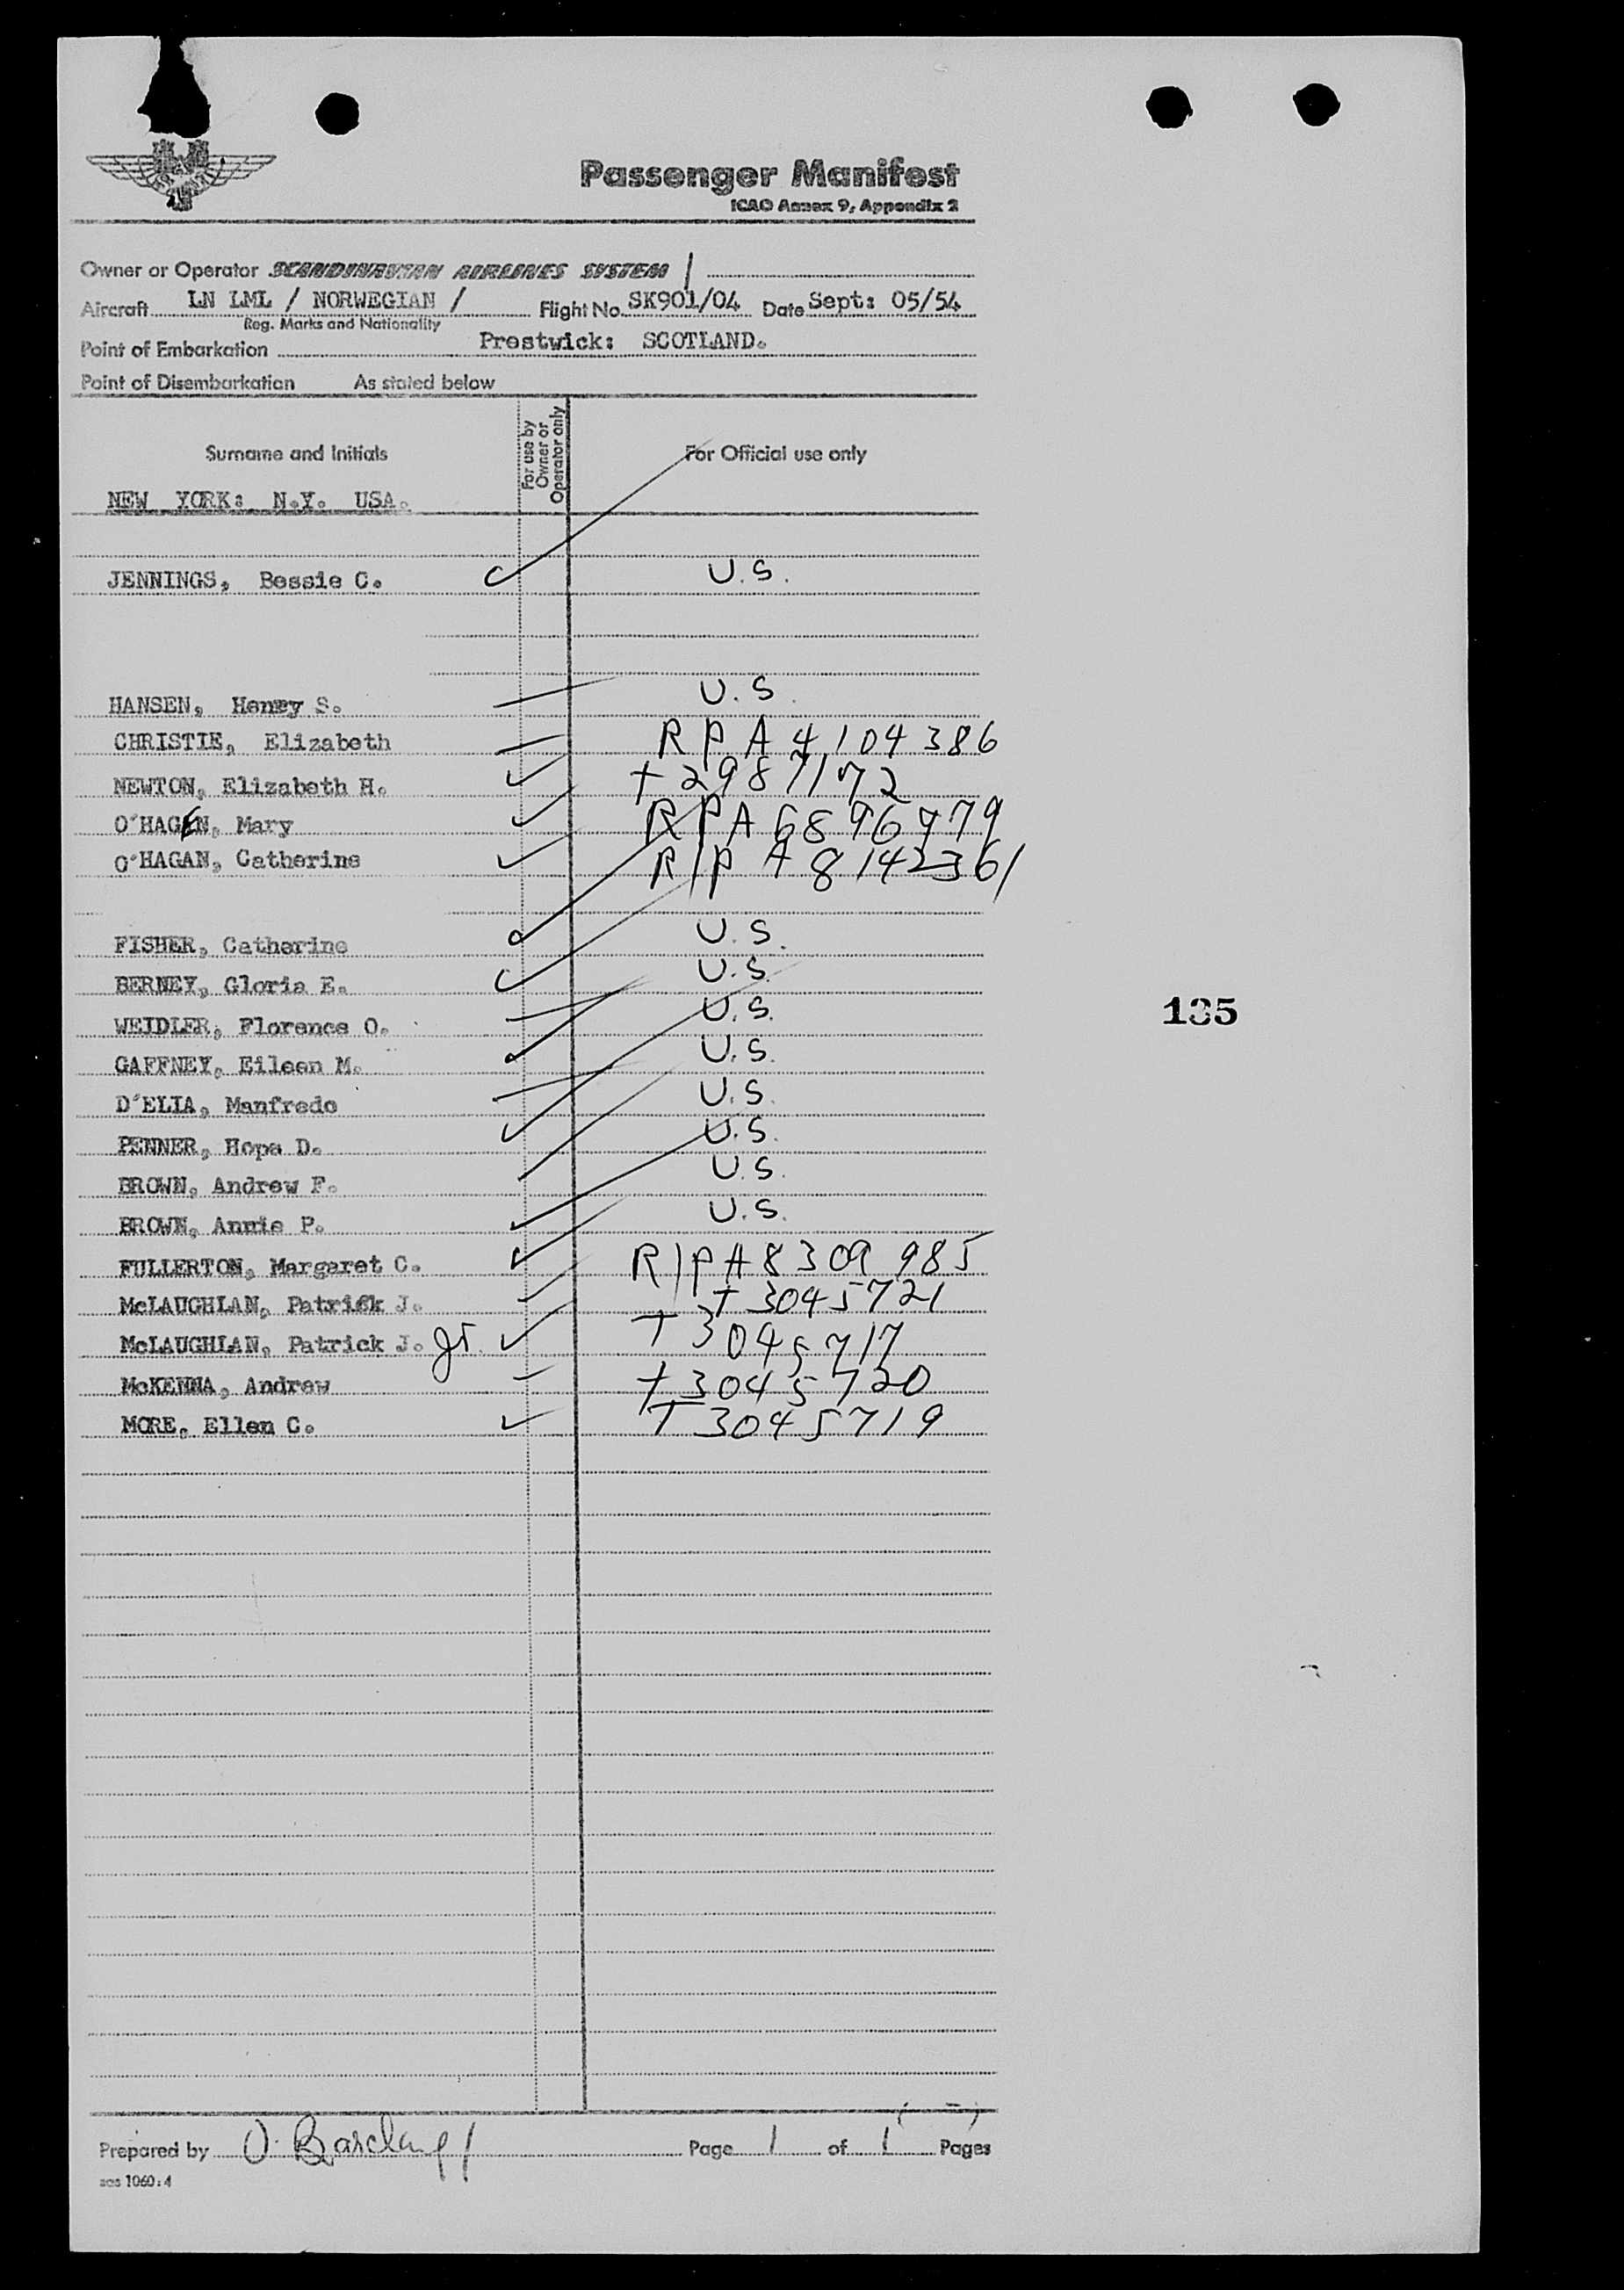 Passenger Manifest
ICAO Annex 9, Appendix 2
Owner or Operator SCANDINAVIAN AIRLINES SYSTEM
Aircraft LN LML / NORWEGIAN / Flight No. SK901/04 Date Sept: 05/54
Reg. Marks and Nationality
Point of Embarkation Prestwick: SCOTLAND.
Point of Disembarkation As stated below
Surname and Initials For use by Owner or Operator only For Official use only
NEW YORK: N.Y. USA.
JENNINGS, Bessie C. U.S.
HANSEN, Henry S. U.S.
CHRISTIE, Elizabeth RPA 4104386
NEWTON, Elizabeth H. T 2987172
O'HAGEN, Mary RPA 6896779
O'HAGAN, Catherine R/P A 8142361
FISHER, Catherine U.S.
BERNEY, Gloria E. U.S.
WEIDLER, Florence O. U.S.
135
GAFFNEY, Eileen M. U.S.
D'ELIA, Manfredo U.S.
PENNER, Hope D. U.S.
BROWN, Andrew F. U.S.
BROWN, Annie P. U.S.
FULLERTON, Margaret C. R/P A 8309985
McLAUGHLAN, Patrick J. T 3045721
McLAUGHLAN, Patrick J. Jr. T 3045717
McKENNA, Andrew T 3045720
MORE, Ellen C. T 3045719
Prepared by Barclay Page 1 of 1 Pages
sas 1060:4